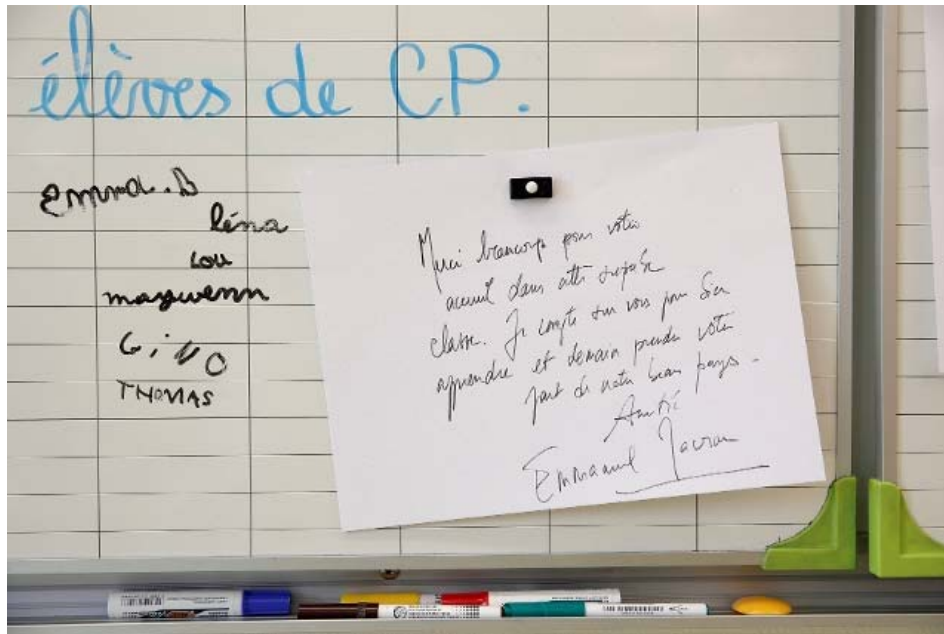 élèves de CP.
Emma.B
Léna
Lou
maywenn
GiNO
THOMAS
Merci beaucoup pour votre
accueil dans cette superbe
classe. Je compte sur vous pour bien
apprendre et demain prendre votre
part de notre beau pays.
Amitié
Emmanuel Macron